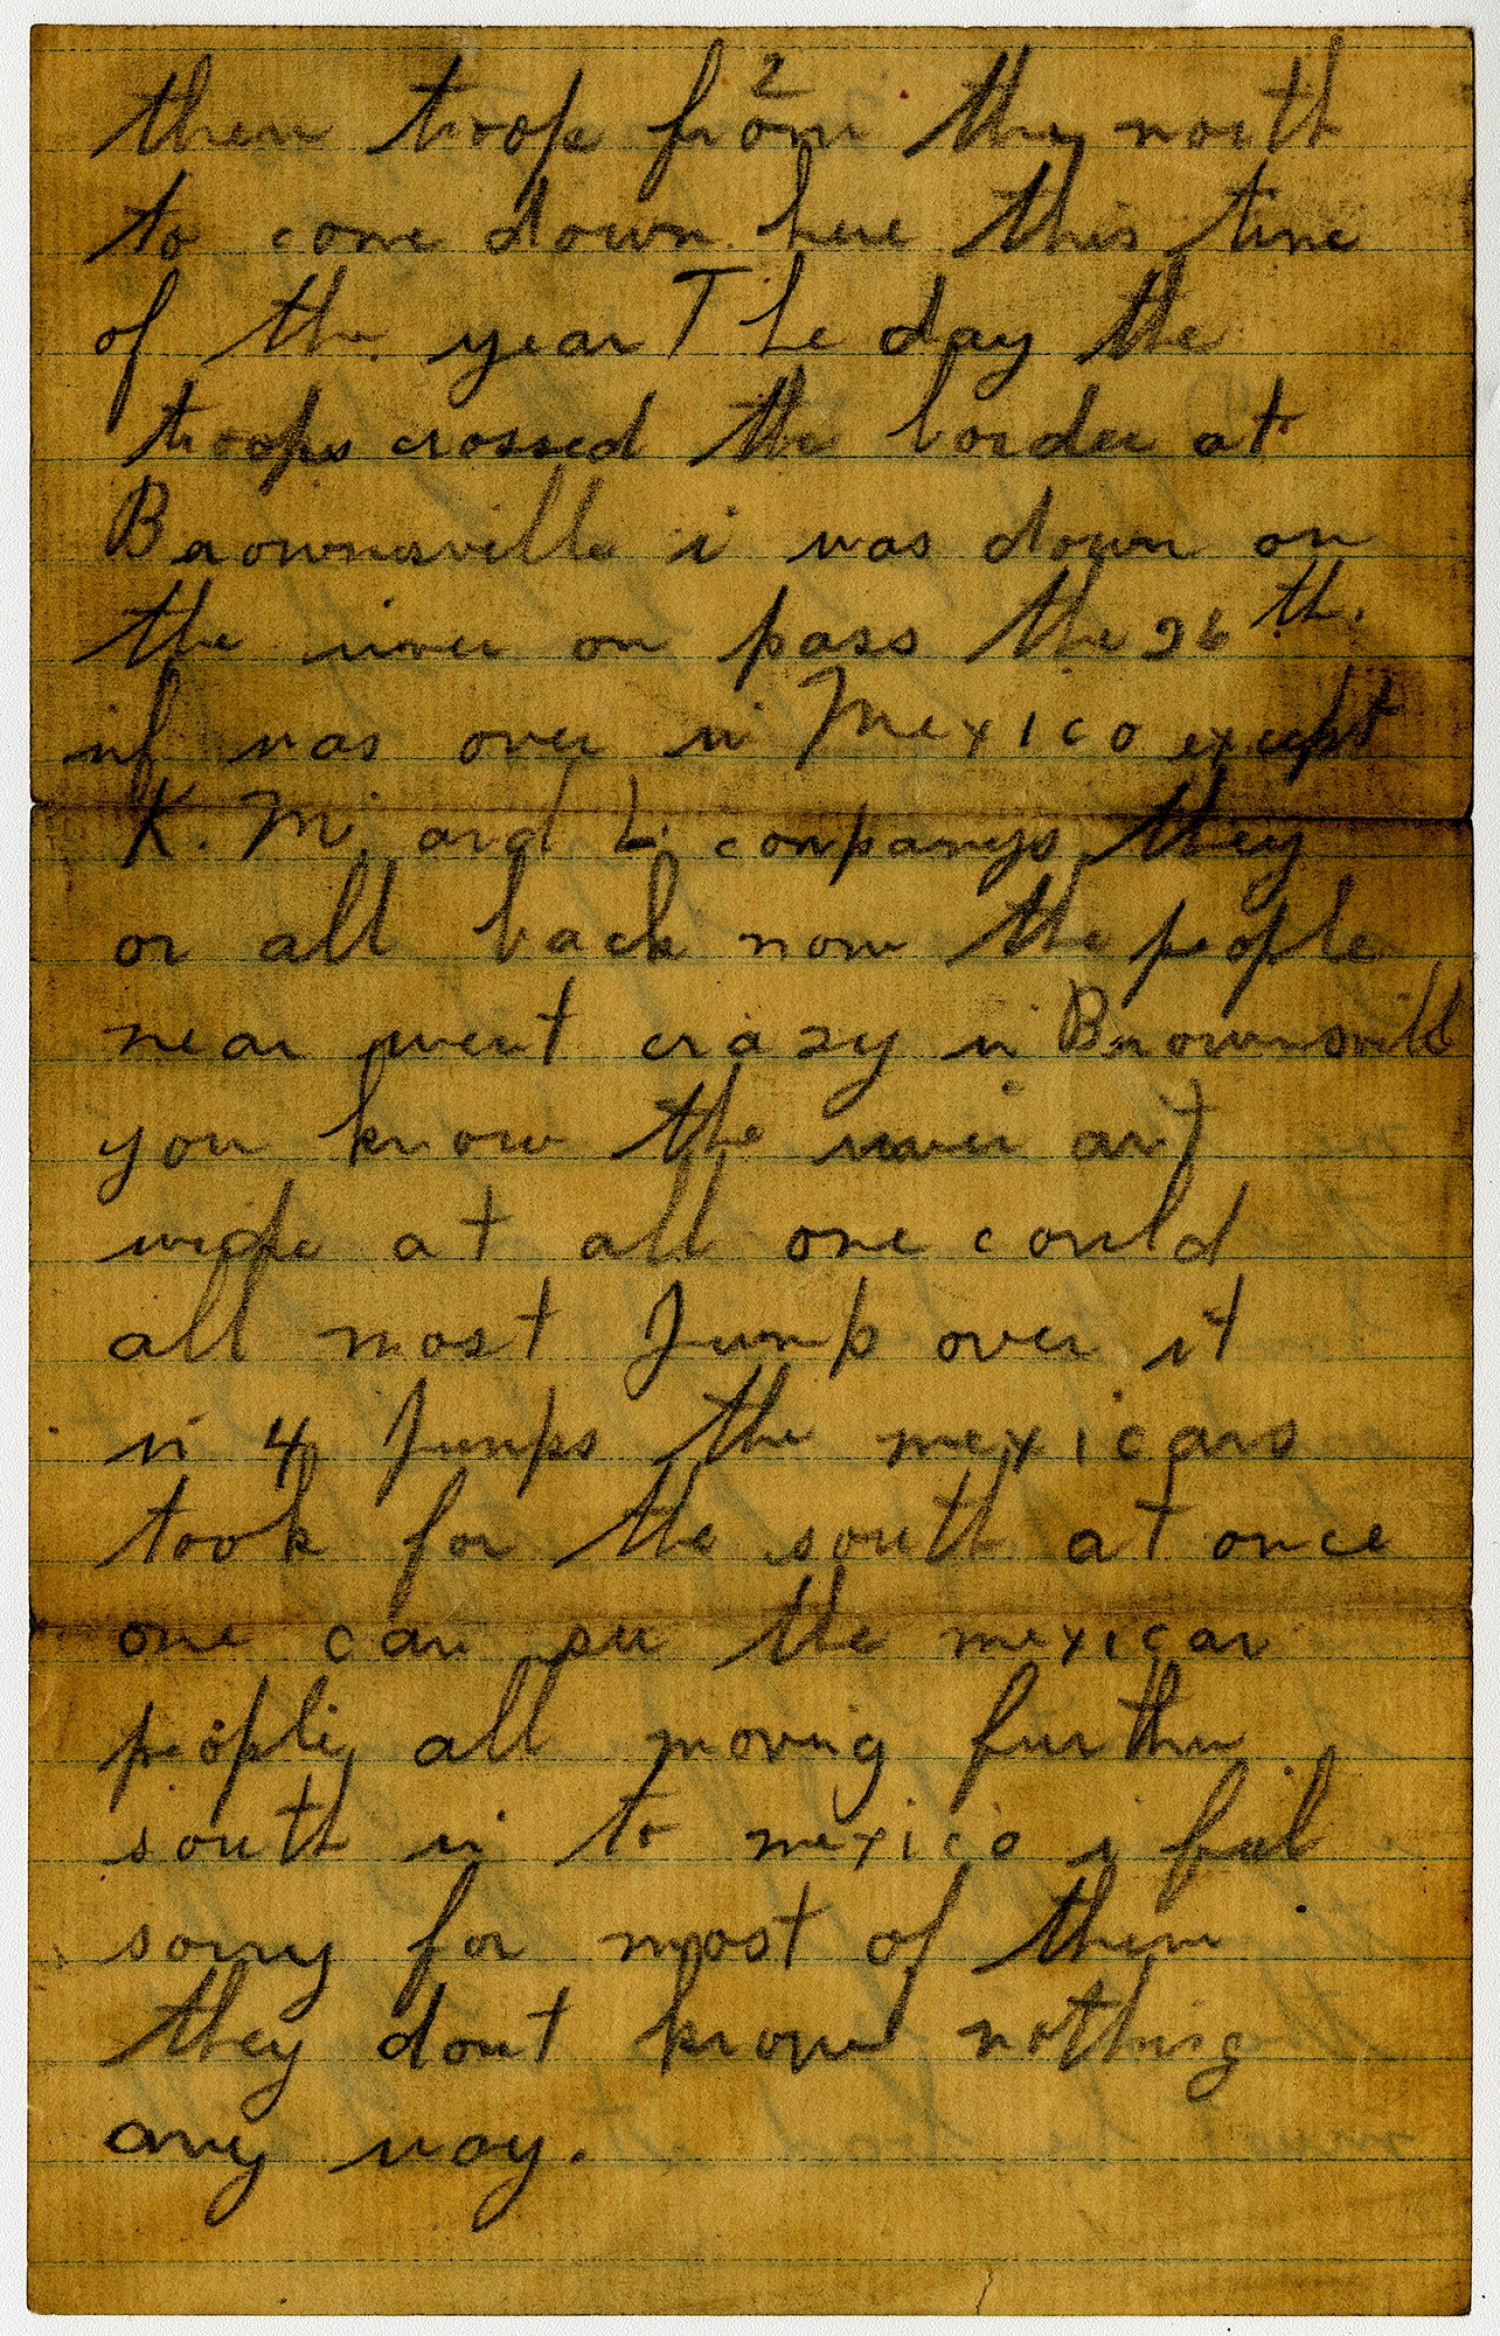 2
them troops from the north
to come down here this time
of the year The day the
troops crossed the border at
Brownsville i was down on
the river on pass the 26th.
inf was over in Mexico except
K. M. and L. companys they
or all back now the people
near went crazy in Brownsvill
you know the river ant
wide at all one could
all most Jump over it
in 4 Jumps the mexicans
took for the south at once
one can see the mexican
people all moving further
south in to mexico i feel
sorry for most of them
they dont know nothing
any way.